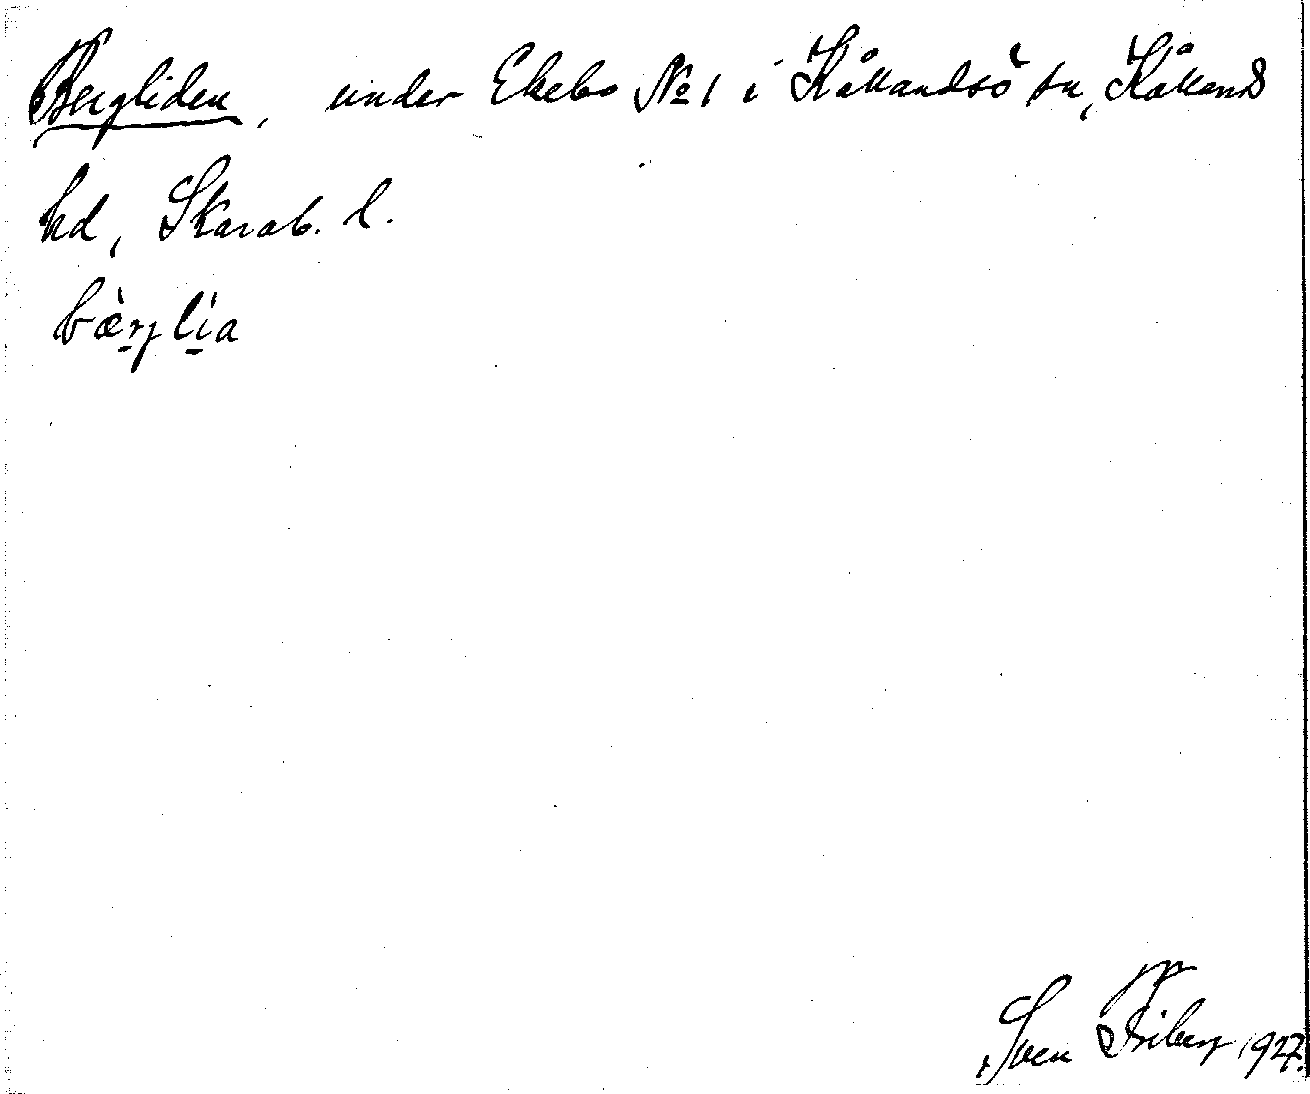 Bergliden, under Ekebo № 1 i Kållandsö sn, Kållands
hd, Skarab. l.
bærjlia
Sven Friberg 1927.